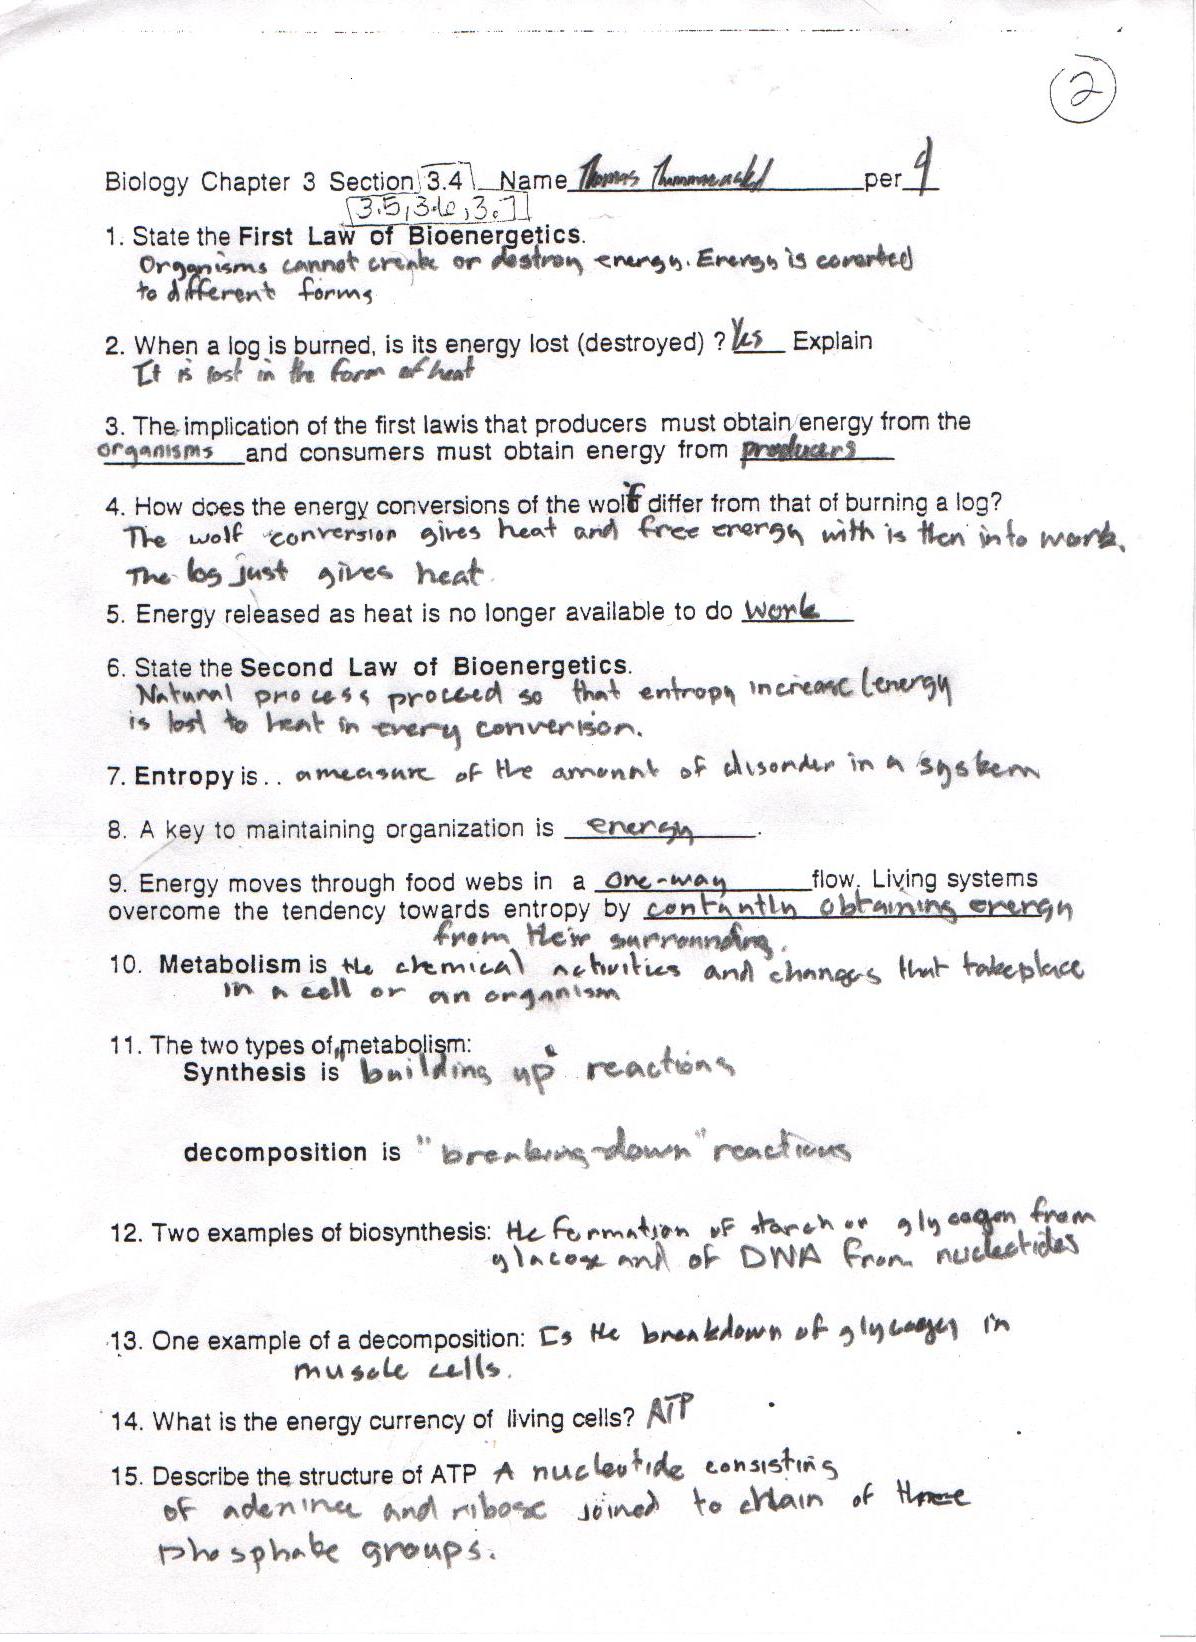 2
Biology Chapter 3 Section 3.4 Name Thomas per 4
3.5, 3.6, 3.7
1. State the First Law of Bioenergetics.
Organisms cannot create or destroy energy. Energy is converted
to different forms
2. When a log is burned, is its energy lost (destroyed) ? Yes Explain
It is lost in the form of heat
3. The implication of the first lawis that producers must obtain energy from the
organisms and consumers must obtain energy from producers
4. How does the energy conversions of the wolf differ from that of burning a log?
The wolf conversion gives heat and free energy with is then into work.
The log just gives heat.
5. Energy released as heat is no longer available to do work
6. State the Second Law of Bioenergetics.
Natural process proceed so that entropy increase (energy
is lost to heat in every converison.
7. Entropy is . . a measure of the amount of disorder in a system
8. A key to maintaining organization is energy.
9. Energy moves through food webs in a one-way flow. Living systems
overcome the tendency towards entropy by contantly obtaining energy
from their surrounding.
10. Metabolism is the chemical activities and changes that take place
in a cell or an organism
11. The two types of metabolism:
Synthesis is building up reactions
decomposition is "breaking-down" reactions
12. Two examples of biosynthesis: the formation of starch or glycogen from
glucose and of DNA from nucleotides
13. One example of a decomposition: Is the breakdown of glycogen in
muscle cells.
14. What is the energy currency of living cells? ATP
15. Describe the structure of ATP A nucleotide consisting
of adenince and ribose joined to chain of three
phosphate groups.